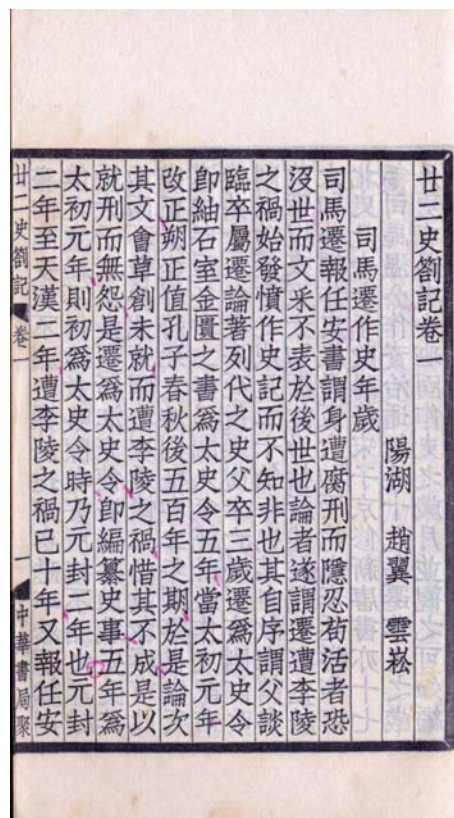 廿二史劄記卷一
陽湖 趙翼 雲崧
司馬遷作史年歲
司馬遷報任安書謂身遭腐刑而隱忍苟活者恐
沒世而文采不表於後世也論者遂謂遷遭李陵
之禍始發憤作史記而不知非也其自序謂父談
臨卒屬遷論著列代之史父卒三歲遷爲太史令
卽紬石室金匱之書爲太史令五年當太初元年
改正朔正值孔子春秋後五百年之期於是論次
其文會草創未就而遭李陵之禍惜其不成是以
就刑而無怨是遷爲太史令卽編纂史事五年爲
太初元年則初爲太史令時乃元封二年也元封
二年至天漢二年遭李陵之禍已十年又報任安
廿二史劄記 卷一 一 中華書局聚